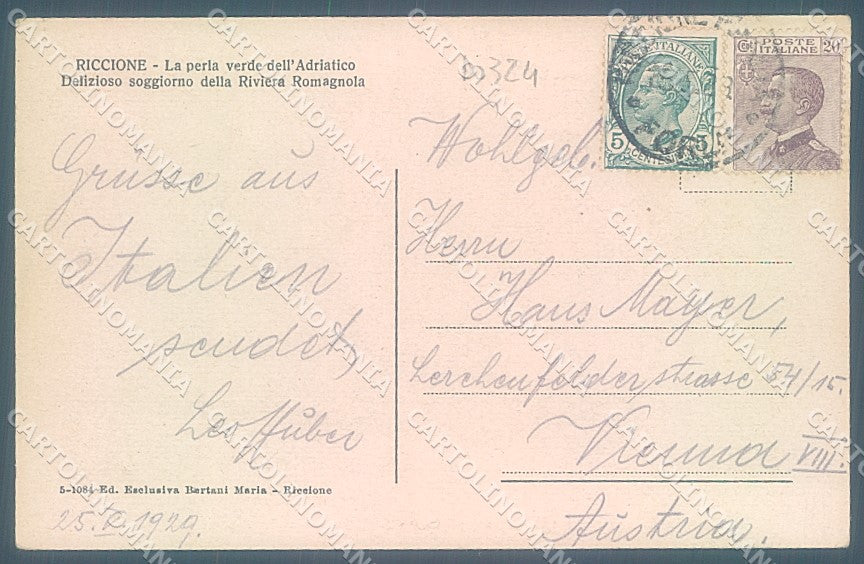 RICCIONE - La perla verde dell'Adriatico
Delizioso soggiorno della Riviera Romagnola
Grüsse aus
Italien
sendet
Leo Huber
5-1084 Ed. Esclusiva Bertani Maria - Riccione
25. 1929.
324
POSTE ITALIANE
5 CENTESIMI 5
POSTE ITALIANE 20
Wohlgeb.
Herrn
Hans Mayer,
Lerchenfelderstrasse 54/15.
Vienna VIII.
Austria.
CARTOLINOMANIA